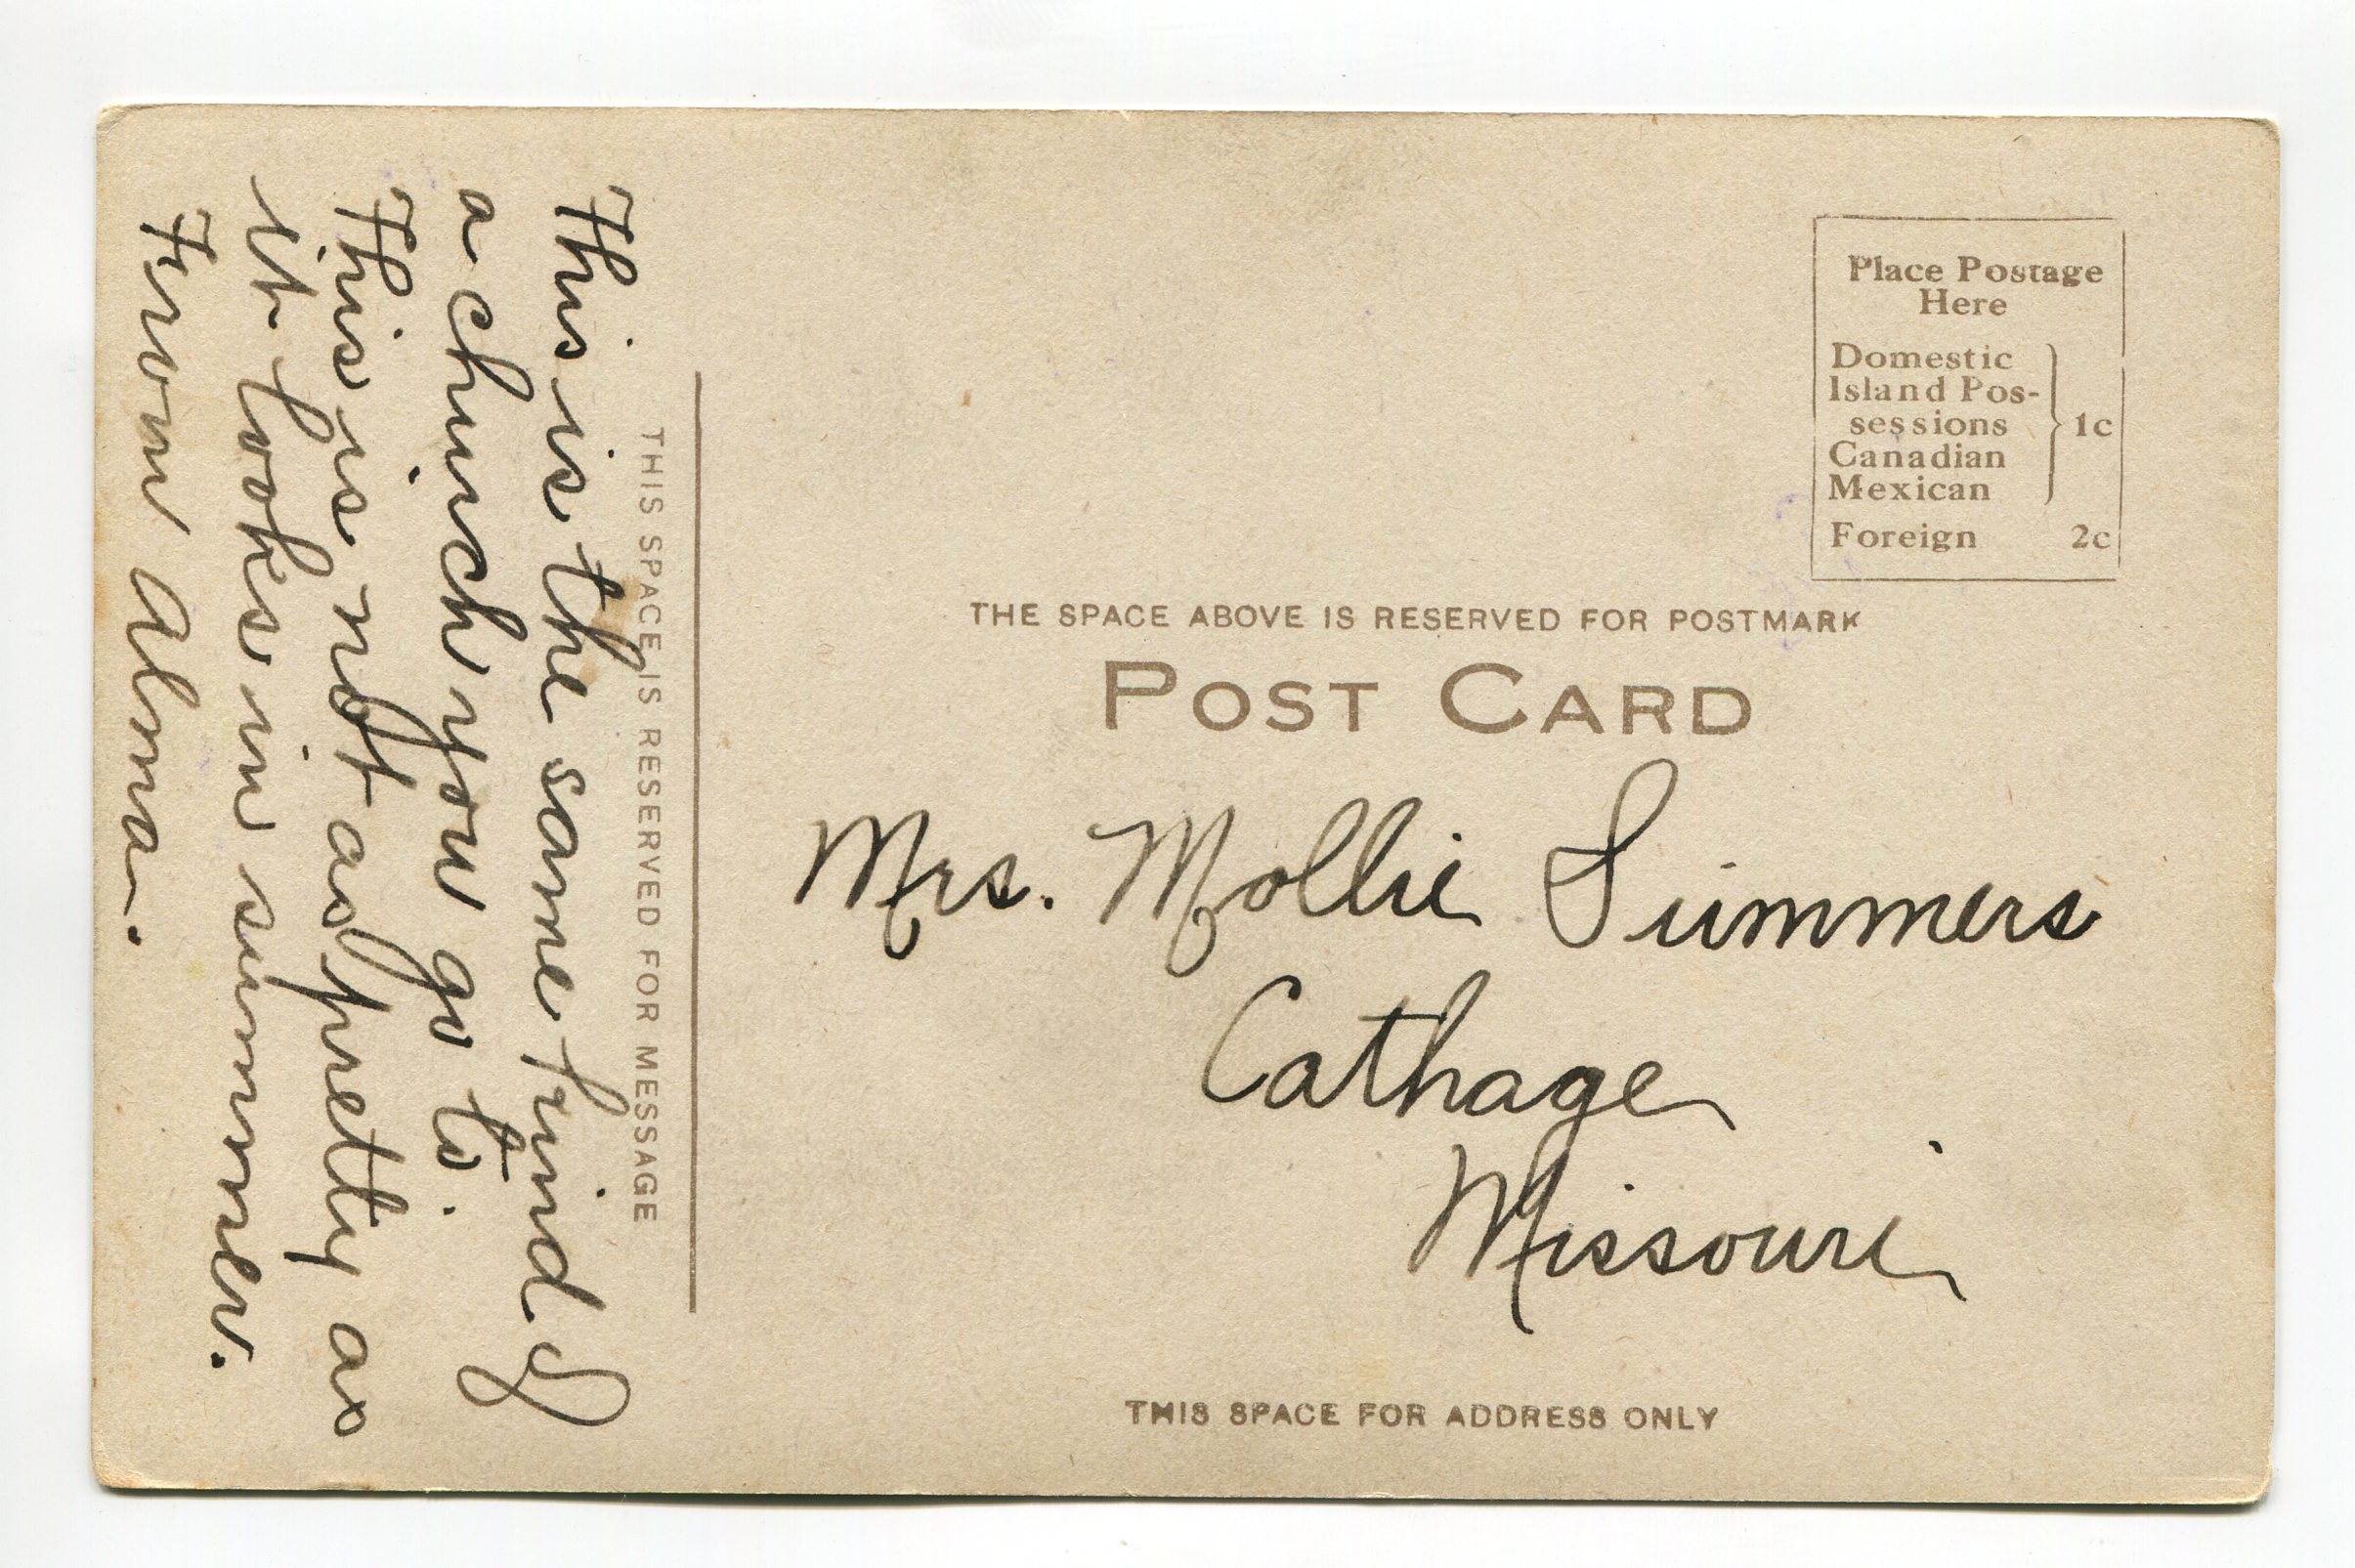 Place Postage
Here
Domestic
Island Pos-
sessions
Canadian
Mexican
1c
Foreign 2c
THE SPACE ABOVE IS RESERVED FOR POSTMARK
POST CARD
Mrs. Mollie Summers
Cathage
Missouri
THIS SPACE FOR ADDRESS ONLY
THIS SPACE IS RESERVED FOR MESSAGE
This is the same kind of
a church you go to.
This is not as pretty as
it looks in summer.
From Alma.